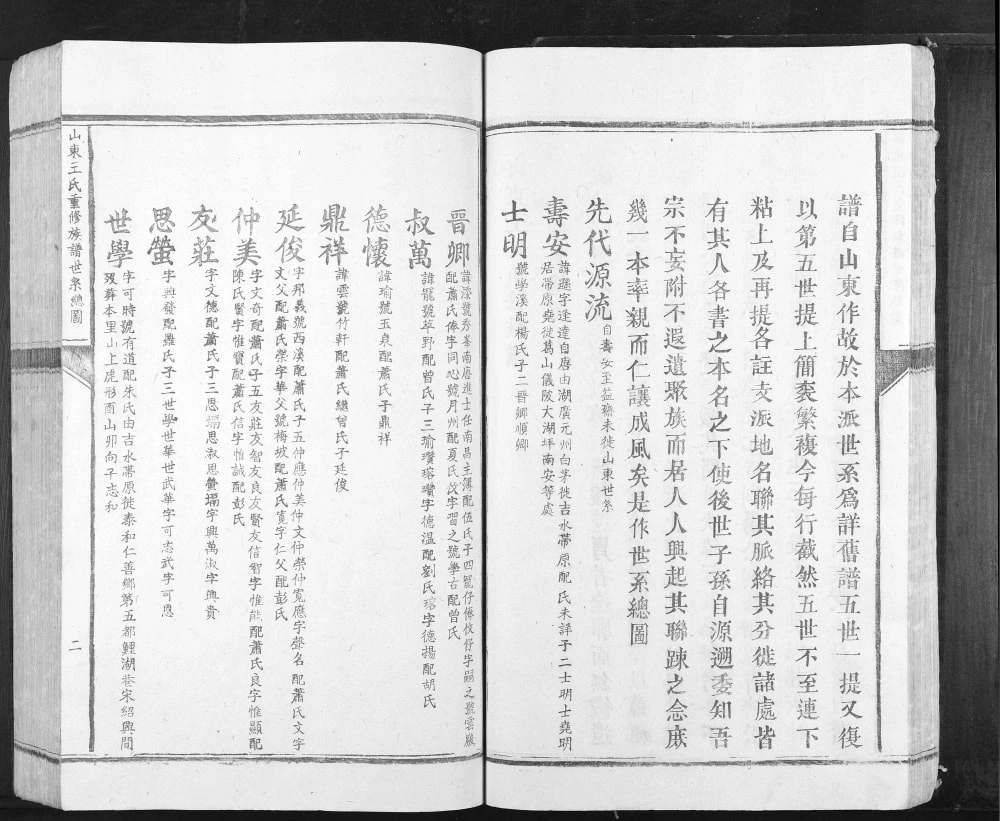 譜自山東作故於本派世系爲詳舊譜五世一提又復
以第五世提上簡袠繁複今每行截然五世不至連下
粘上及再提各註支派地名聯其脈絡其分徙諸處皆
有其人各書之本名之下使後世子孫自源遡委知吾
宗不妄附不遐遺聚族而居人人興起其聯踈之念庶
幾一本率親而仁讓成風矣是作世系總圖
先代源流
自壽安至益孫未徙山東世系
壽安
諱遜字逢達自唐由湖廣元州白茅徙吉水帶原配氏未詳子二士明士堯明
居帶原堯徙葛山儀陂大湖坪南安等處
士明
號學溪配楊氏子二晋卿順卿
晋卿
諱漆號秀峯南唐進士任南昌主簿配伍氏子四寵仔俸伩仔字嗣之號雲巖
配蕭氏俸字同心號月州配夏氏伩字習之號學古配曾氏
叔萬
諱寵號莘野配曾氏子三瑜瓚瑢瓚字德温配劉氏瑢字德揚配胡氏
德懷
諱瑜號玉泉配蕭氏子鼎祥
鼎祥
諱雲號竹軒配蕭氏繼曾氏子廷俊
延俊
字邦義號西溪配蕭氏子五仲應仲美仲文仲榮仲寬應字聲名配蕭氏文字
文父配蕭氏榮字華父號梅坡配蕭氏寬字仁父配彭氏
仲美
字文奇配蕭氏子五友莊友智友良友賢友信智字惟能配蕭氏良字惟顯配
陳氏賢字惟寶配蕭氏信字惟誠配彭氏
友莊
字文德配蕭氏子三思塥思淑思螢塥字興萬淑字興貴
思螢
字興發配羅氏子三世學世華世武華字可志武字可恩
世學
字可時號有道配朱氏由吉水帶原徙泰和仁善鄉第五都鯉湖巷宋紹興間
歿葬本里山上虎形酉山卯向子志和
山東王氏重修族譜世系總圖
二